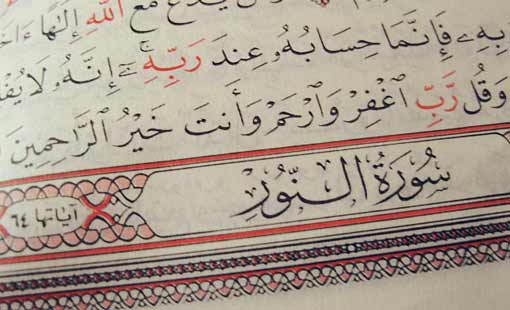 يَدْعُ مَعَ ٱللَّهِ إِلَٰهًا ءَاخَ
بِهِۦ فَإِنَّمَا حِسَابُهُۥ عِندَ رَبِّهِۦٓ ۚ إِنَّهُۥ لَا يُفْ
وَقُل رَّبِّ ٱغْفِرْ وَٱرْحَمْ وَأَنتَ خَيْرُ ٱلرَّٰحِمِينَ
سُورَةُ النُّورِ
آياتها ٦٤